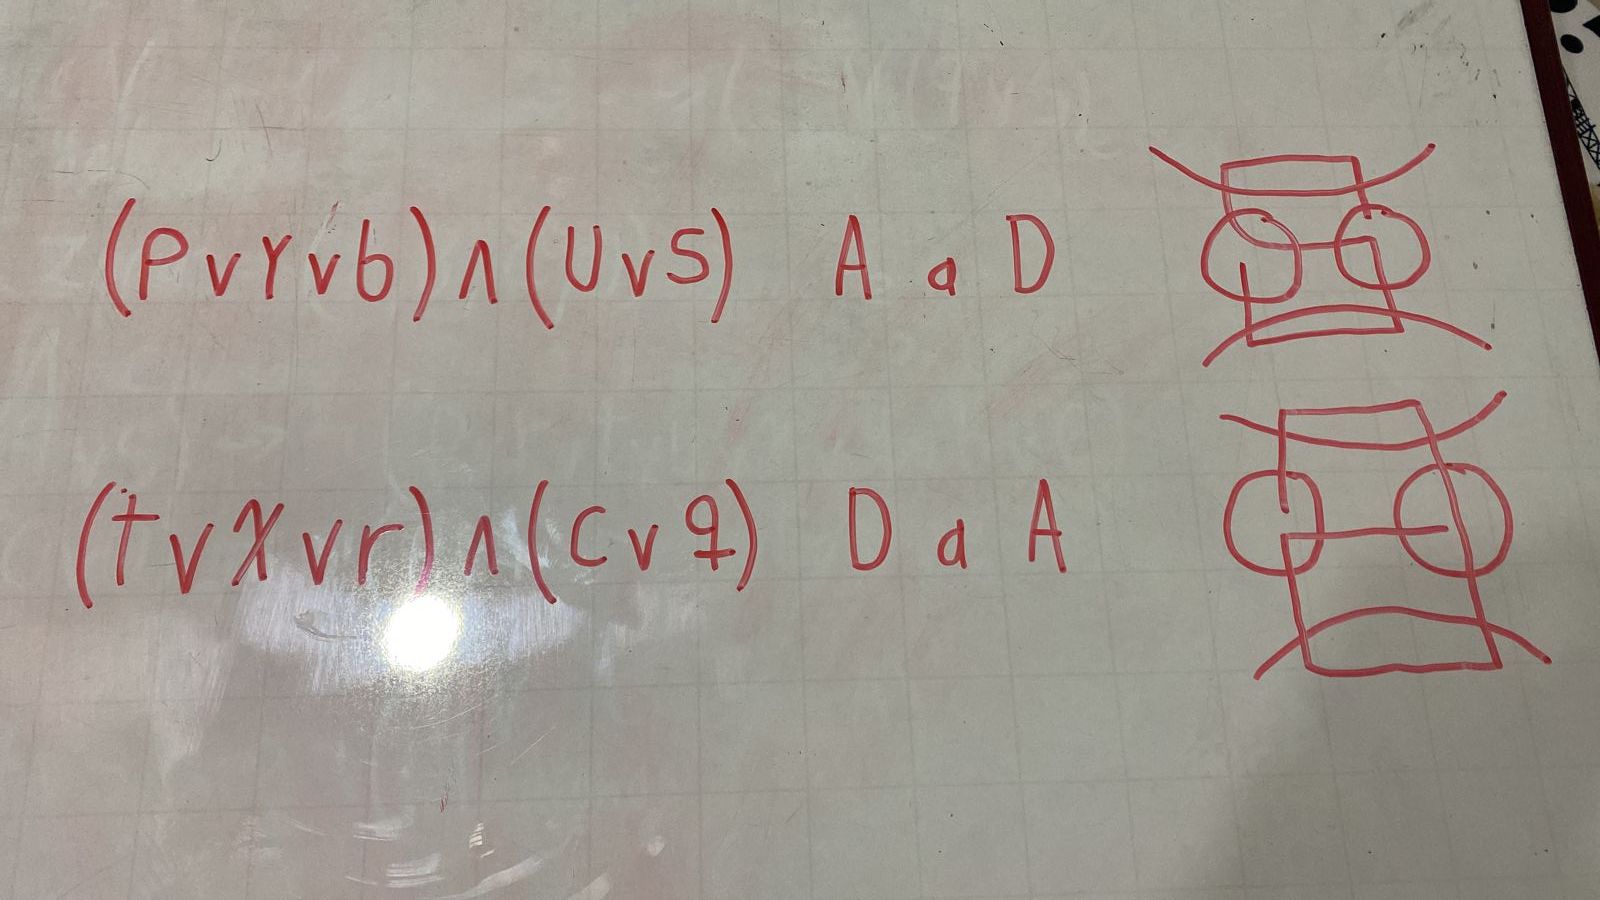 (P∨Y∨b)∧(U∨S) A a D
(t∨X∨r)∧(C∨q) D a A